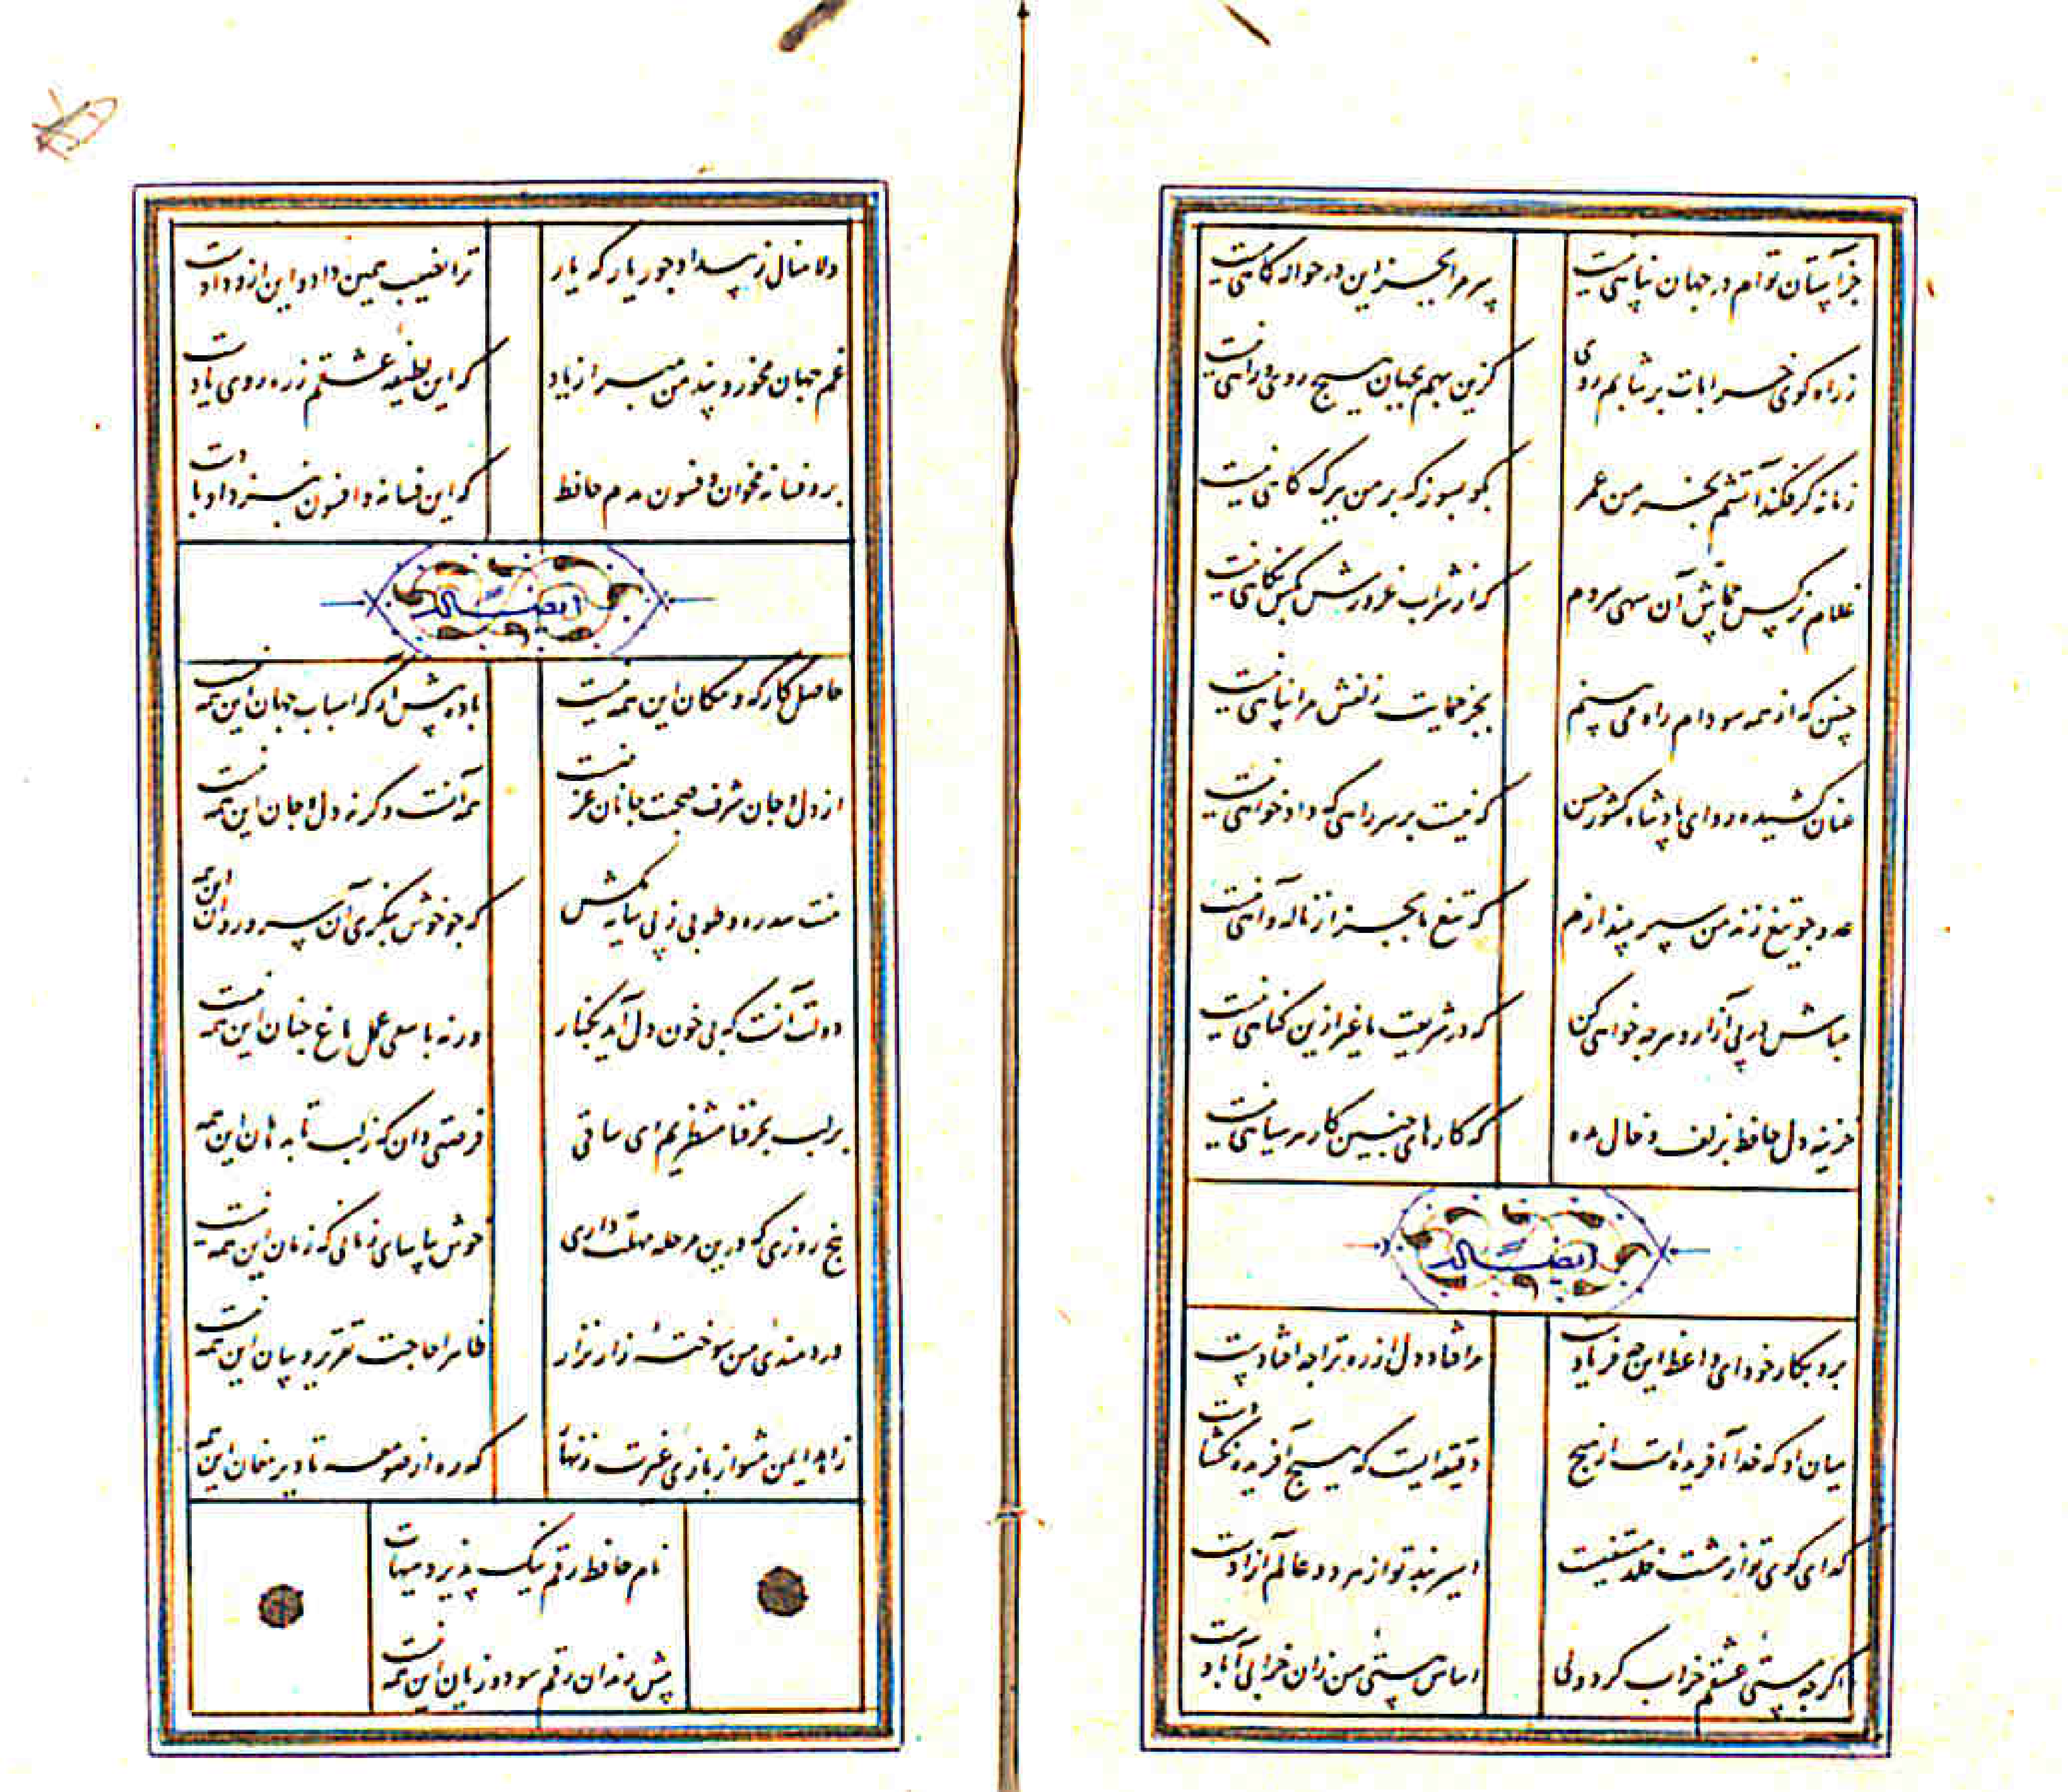 جز آستان توام در جهان پناهی نیست
سر مرا بجز این در حواله گاهی نیست
ز راه کوی خرابات برنتابم روی
کزین بهم بجهان هیچ روی و راهی نیست
زمانه گر فکند آتشم بخرمن عمر
بگو بسوز که بر من ببرگ کاهی نیست
غلام نرگس جماش آن سهی سروم
که از شراب غرورش بکس نگاهی نیست
چنین که از همه سو دام راه می بینم
بجز حمایت زلفش مرا پناهی نیست
عنان کشیده رو ای پادشاه کشور حسن
که نیست بر سر راهی که دادخواهی نیست
عدو چو تیغ زند من سپر بیندازم
که تیغ ما بجز از ناله و آهی نیست
مباش در پی آزار و هرچه خواهی کن
که در شریعت ما غیر ازین گناهی نیست
خزینه دل حافظ بزلف و خال مده
که کارهای چنین کار هر سیاهی نیست
ایضاً له
برو بکار خود ای واعظ این چه فریادست
مرا فتاد دل از ره ترا چه افتادست
میان او که خدا آفریده است از هیچ
دقیقه ایست که هیچ آفریده نگشادست
گدای کوی تو از هشت خلد مستغنیست
اسیر بند تو از هر دو عالم آزادست
اگرچه مستی عشقم خراب کرد ولی
اساس هستی من زان خرابی آبادست
دلا منال ز بیداد جور یار که یار
ترا نصیب همین داد و این ازو دادست
غم جهان مخور و پند من مبر از یاد
که این لطیفه عشقم ز ره روی یادست
برو فسانه مخوان و فسون مدم حافظ
که این فسانه و افسون بسی مرا یادست
ایضاً له
حاصل کارگه و مکان این همه نیست
باده پیش آر که اسباب جهان این همه نیست
از دل و جان شرف صحبت جانان غرضست
همه آنست وگرنه دل و جان این همه نیست
منت سدره و طوبی ز پی سایه مکش
که چو خوش بنگری آن سرو روان این همه
دولت آنست که بی خون دل آید بکنار
ورنه با سعی عمل باغ جنان این همه نیست
بر لب بحر فنا منتظریم ای ساقی
فرصتی دان که ز لب تا به دهان این همه
پنج روزی که درین مرحله مهلت داری
خوش بیاسای زمانی که زمان این همه نیست
دردمندی من سوخته زار نزار
ظاهرا حاجت تقریر و بیان این همه نیست
زاهد ایمن مشو از بازی غیرت زنهار
که ره از صومعه تا دیر مغان این همه
نام حافظ رقم نیک پذیرد هیهات
پیش رندان رقم سود و زیان این همه نیست